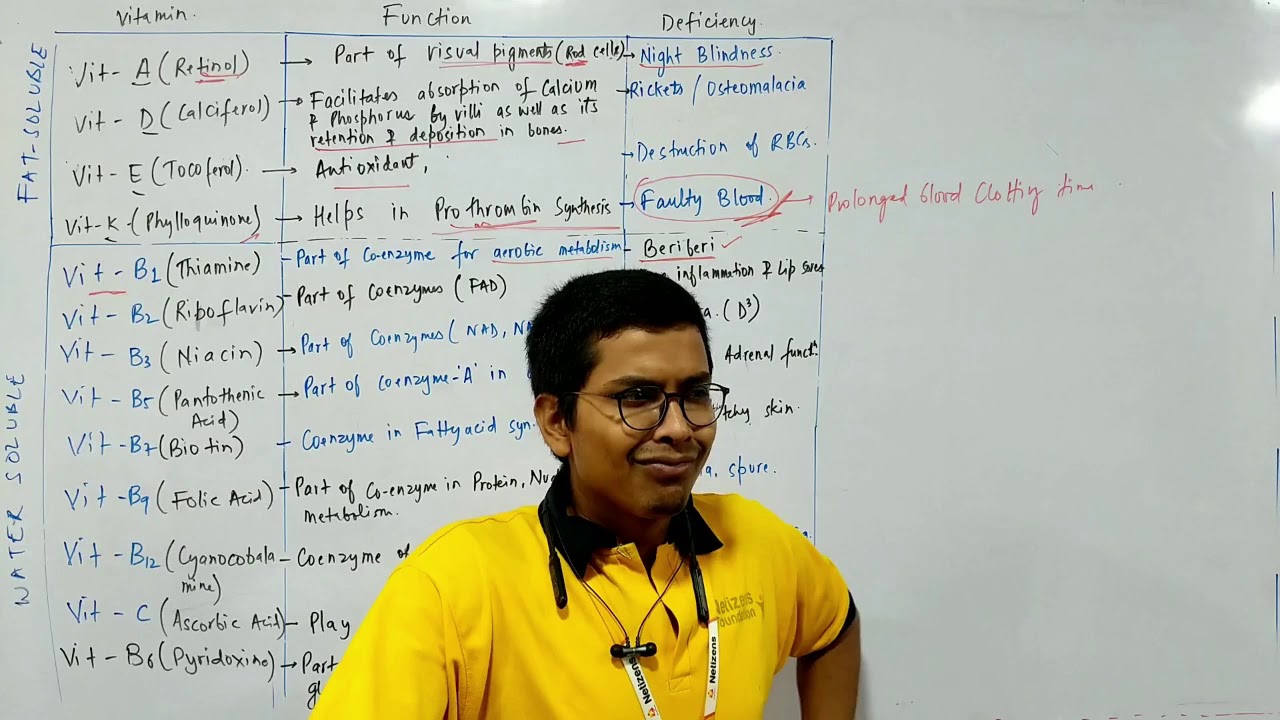 Vitamin.
Function
Deficiency.
FAT-SOLUBLE
Vit - A (Retinol)
Part of visual pigments (Rod cells)
Night Blindness.
Vit - D (Calciferol)
Facilitates absorption of Calcium
& Phosphorus by villi as well as its
retention & deposition in bones.
Rickets / Osteomalacia
Vit - E (Tocoferol).
Antioxidant,
Destruction of RBCs.
Vit-K (Phylloquinone)
Helps in Prothrombin Synthesis
Faulty Blood.
Prolonged blood Clotting time
WATER SOLUBLE
Vit - B1 (Thiamine)
Part of Co-enzyme for aerobic metabolism
Beriberi
Vit - B2 (Riboflavin)
Part of Coenzymes (FAD)
inflammation & Lip sores
Vit - B3 (Niacin)
Part of Coenzymes (NAD,
(D3)
Vit - B5 (Pantothenic
Acid)
Part of coenzyme-'A' in
Adrenal functn.
Vit - B7 (Biotin)
Coenzyme in Fatty acid syn.
skin.
Vit - B9 (Folic Acid)
Part of Co-enzyme in Protein,
metabolism.
spure.
Vit - B12 (Cyanocobala
mine)
Coenzyme of
Vit - C (Ascorbic Acid)
Play
Vit - B6 (Pyridoxine)
Part
gl
Netizens
Foundation
Netizens
Netizens